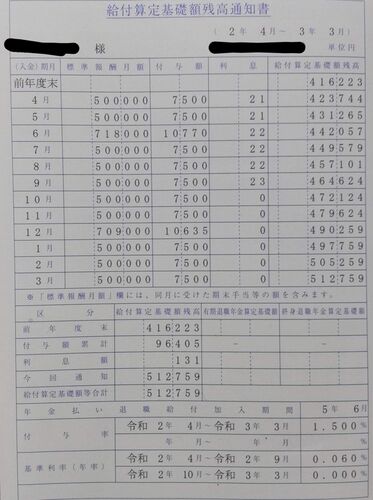 給付算定基礎額残高通知書
( 2年 4月～ 3年 3月)
様 単位円
(入金)期月 標準報酬月額 付与額 利息 給付算定基礎額残高
前年度末 416223
4月 500000 7500 21 423744
5月 500000 7500 21 431265
6月 718000 10770 22 442057
7月 500000 7500 22 449579
8月 500000 7500 22 457101
9月 500000 7500 23 464624
10月 500000 7500 0 472124
11月 500000 7500 0 479624
12月 709000 10635 0 490259
1月 500000 7500 0 497759
2月 500000 7500 0 505259
3月 500000 7500 0 512759
※「標準報酬月額」欄には、同月に受けた期末手当等の額を含みます。
区分 給付算定基礎額残高 有期退職年金算定基礎額 終身退職年金算定基礎額
前年度末 416223
付与額累計 96405 － －
利息額 131
今回通知 512759 － －
給付算定基礎額等合計 512759
年金払い退職給付加入期間 5年 6月
付与率 令和 2年 4月～ 令和 3年 3月 1.500%
年 月～ 年 月 %
基準利率(年率) 令和 2年 4月～ 令和 2年 9月 0.060%
令和 2年 10月～ 令和 3年 3月 0.000%